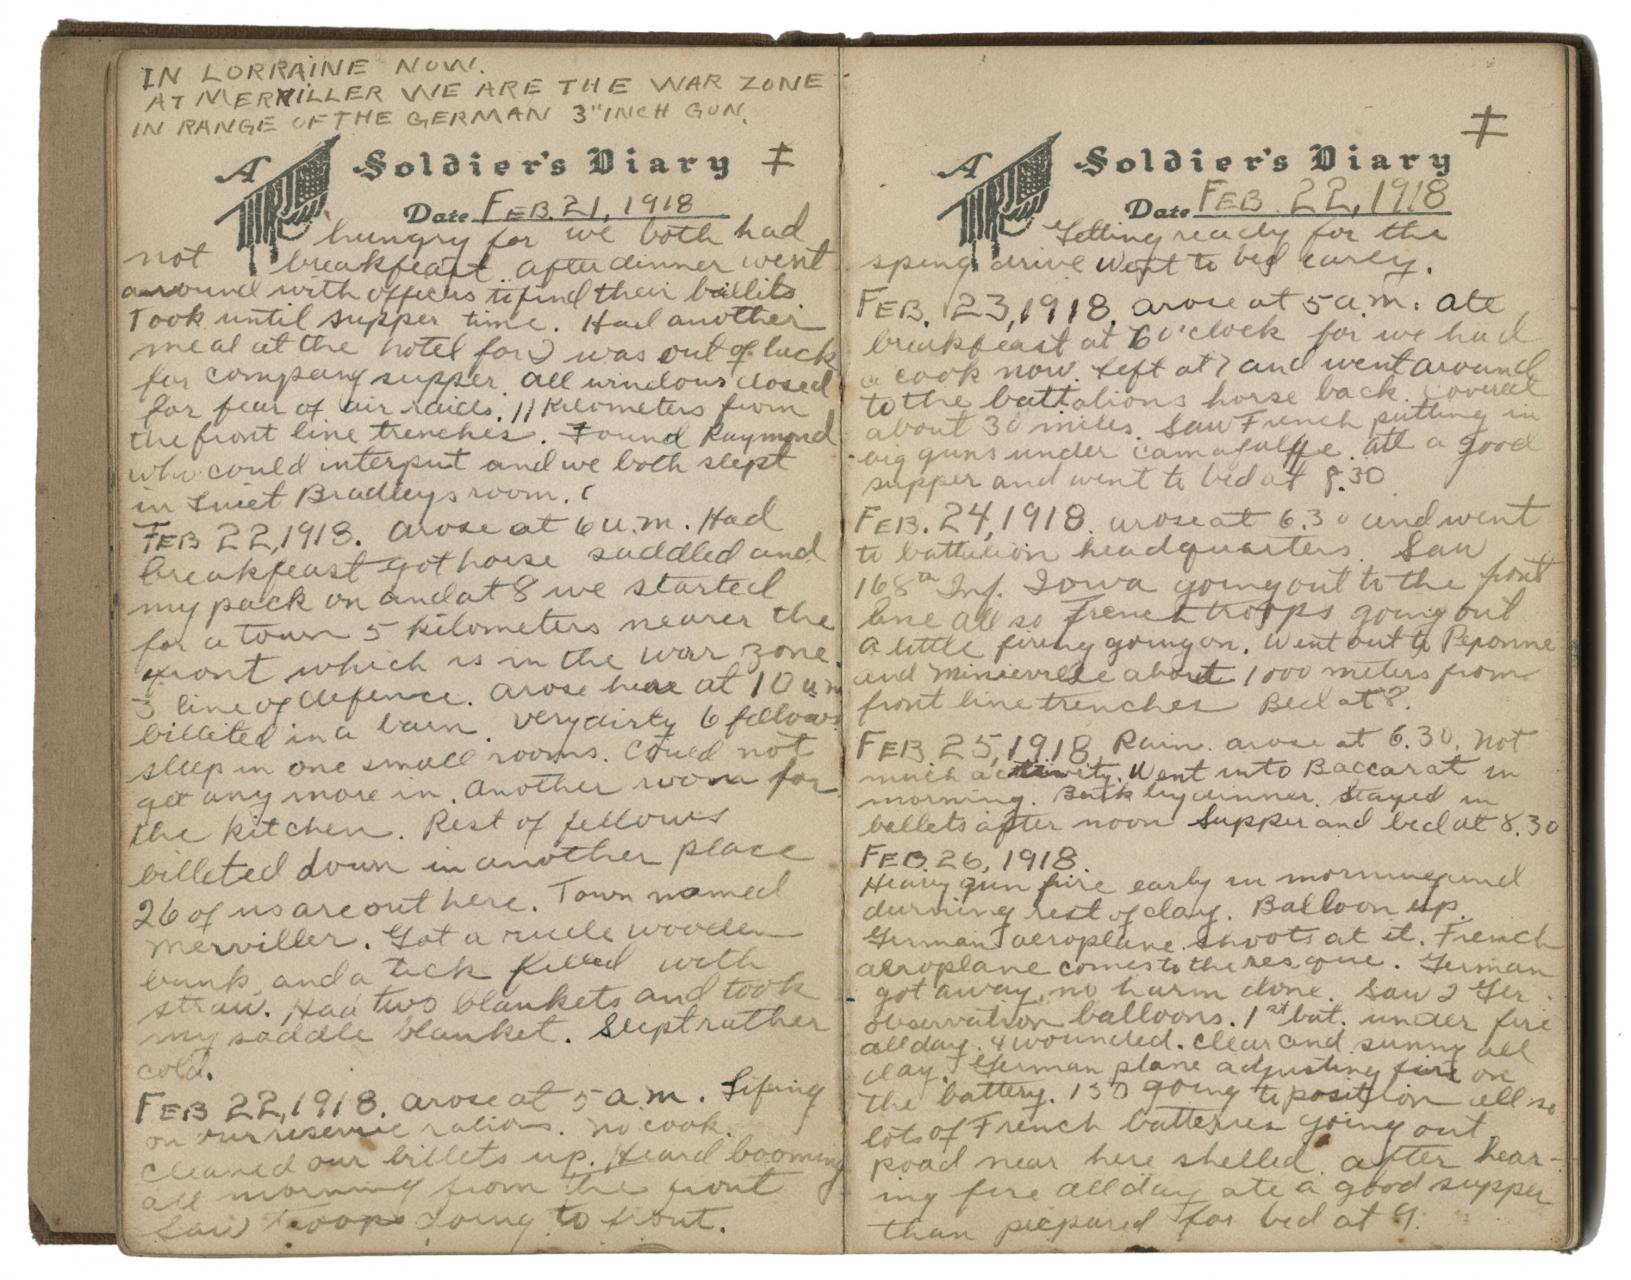 IN LORRAINE NOW.
AT MERRILLER WE ARE THE WAR ZONE
IN RANGE OF THE GERMAN 3" INCH GUN.
A Soldier's Diary ‡
Date FEB. 21, 1918
hungry for we both had
not breakfeast. after dinner went
arround with officers to find their billits
Took until supper time. Had another
meal at the hotel for I was out of luck
for company supper. all windows closed
for fear of air raids. 11 Kilometers from
the front line trenches. Found Raymond
who could interput and we both slept
in Bradleys room.
FEB 22, 1918. arose at 6 a.m. Had
breakfeast got horse saddled and
my pack on and at 8 we started
for a town 5 kilometers nearer the
front which is in the war zone.
3 line of defence. arose here at 10 a m
billited in a barn. very dirty 6 fellows
sleep in one small rooms. Could not
get any more in. another room for
the kitchen. Rest of fellows
billeted down in another place
26 of us are out here. Town named
Merviller. Got a rude wooden
bunk and a tick filled with
straw. Had two blankets and took
my saddle blanket. Slept rather
cold.
FEB 22, 1918. arose at 5 a.m.
on our reserve rations. no cook.
cleaned our billets up. Heard booming
all morning from the front
Saw Troops going to front.
‡
A Soldier's Diary
Date FEB. 22, 1918
Getting ready for the
spring drive Went to bed earey.
FEB. 23, 1918. arose at 5 a.m. ate
breakfeast at 6 o'clock for we had
a cook now. Left at 7 and went around
to the battalions horse back. Covered
about 30 miles. Saw French putting in
big guns under  a good
supper and went to bed at 8.30
FEB. 24, 1918. arose at 6.30 and went
to battalion headquarters. Saw
168th Inf. Iowa going out to the front
line all so French troops going out
A little fireing going on. Went out to Peponne
and Minieville about 1000 meters from
front line trenches Bed at 8.
FEB 25, 1918 Rain. arose at 6.30. not
much activity. Went into Baccarat in
morning. Back by dinner. Stayed in
bellets after noon Supper and bed at 8.30
FEB. 26, 1918.
Heavy gun fire early in morning and
durning rest of day. Balloon up.
German aeroplane shoots at it. French
aeroplane comes to the resque. German
got away, no harm done. Saw 2 Ger.
observation balloons. 1st bat. under fire
all day. 4 wounded. clear and sunny all
day. German plane adjusting fire on
the battery. 150 going to position all so
lots of French batteries going out
Road near here shelled. after hear-
ing fire all day ate a good supper
than prepared for bed at 9.